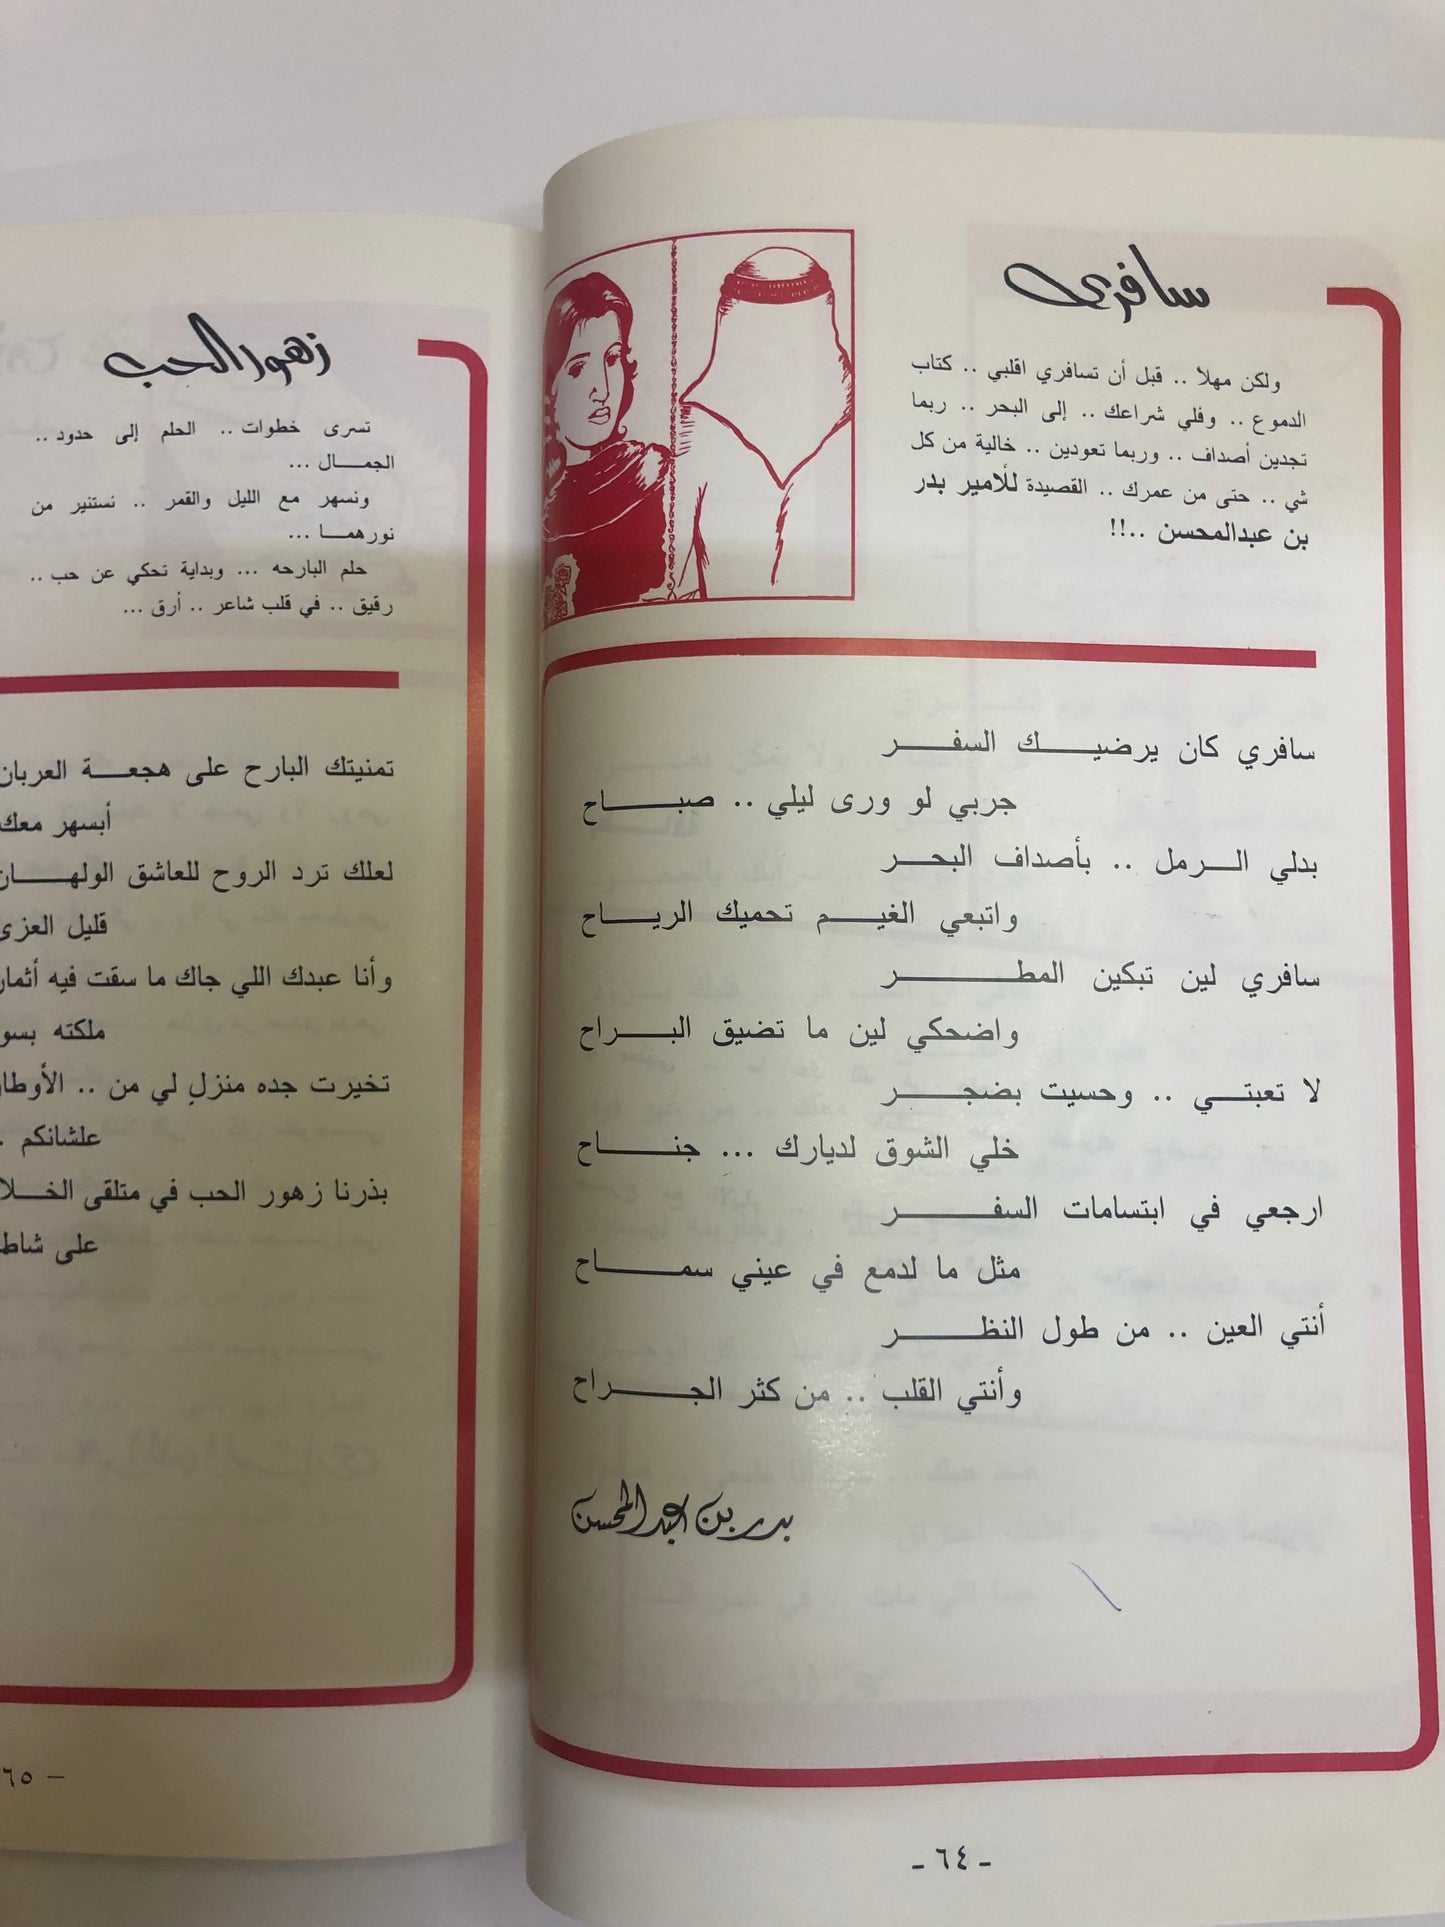 سافري
ولكن مهلا .. قبل أن تسافري اقلبي .. كتاب
الدموع .. وفلي شراعك .. إلى البحر .. ربما
تجدين أصداف .. وربما تعودين .. خالية من كل
شي .. حتى من عمرك .. القصيدة للأمير بدر
بن عبدالمحسن ..!!
سافري كان يرضيك السفر
جربي لو ورى ليلي .. صباح
بدلي الرمل .. بأصداف البحر
واتبعي الغيم تحميك الرياح
سافري لين تبكين المطر
واضحكي لين ما تضيق البراح
لا تعبتي .. وحسيت بضجر
خلي الشوق لديارك ... جناح
ارجعي في ابتسامات السفر
مثل ما لدمع في عيني سماح
أنتي العين .. من طول النظر
وأنتي القلب .. من كثر الجراح
بدر بن عبدالمحسن
- ٦٤ -
زهور الحب
تسرى خطوات .. الحلم إلى حدود ..
الجمال ...
ونسهر مع الليل والقمر .. نستنير من
نورهما ...
حلم البارحه ... وبداية تحكي عن حب ..
رقيق .. في قلب شاعر .. أرق ...
تمنيتك البارح على هجعة العربان
أبسهر معك
لعلك ترد الروح للعاشق الولهان
قليل العزى
وأنا عبدك اللي جاك ما سقت فيه أثمان
ملكته بسو
تخيرت جده منزلٍ لي من .. الأوطا
علشانكم .
بذرنا زهور الحب في متلقى الخلا
على شاط
٦٥ -